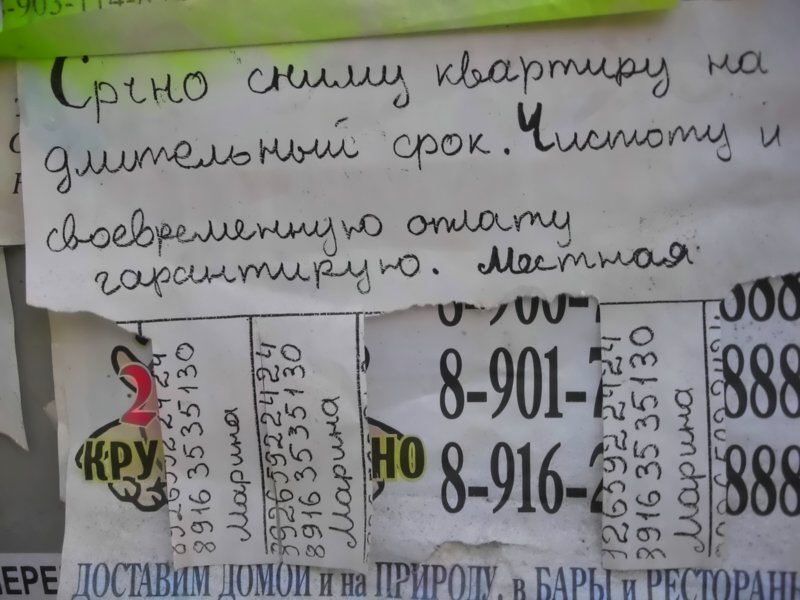 Срчно сниму квартиру на
длительный срок. Чистоту и
своевременную оплату
гарантирую. Местная
89265922424
89163535130
Марина
89265922424
89163535130
Марина
89163535130
Марина
2
КРУ
НО
8-901-7
8-916-2
888
888
888
ДОСТАВИМ ДОМОЙ и на ПРИРОДУ, в БАРЫ и РЕСТОРАНЫ